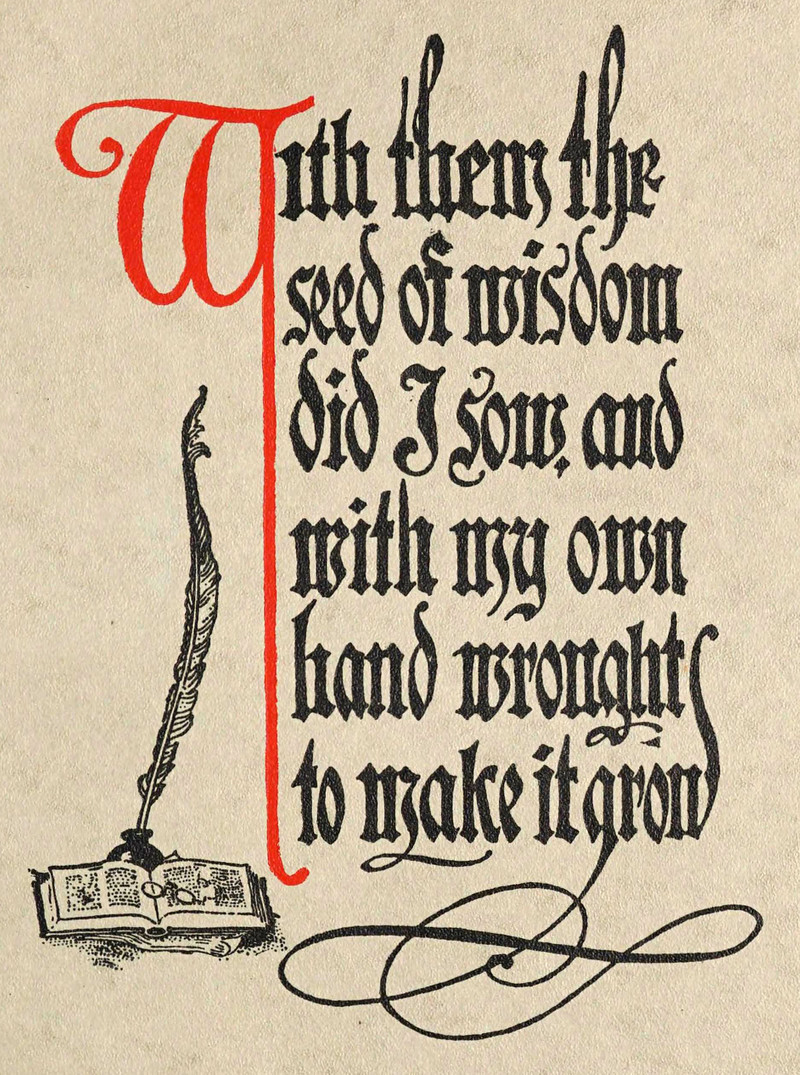 With them the
seed of wisdom
did I sow, and
with my own
hand wrought
to make it grow